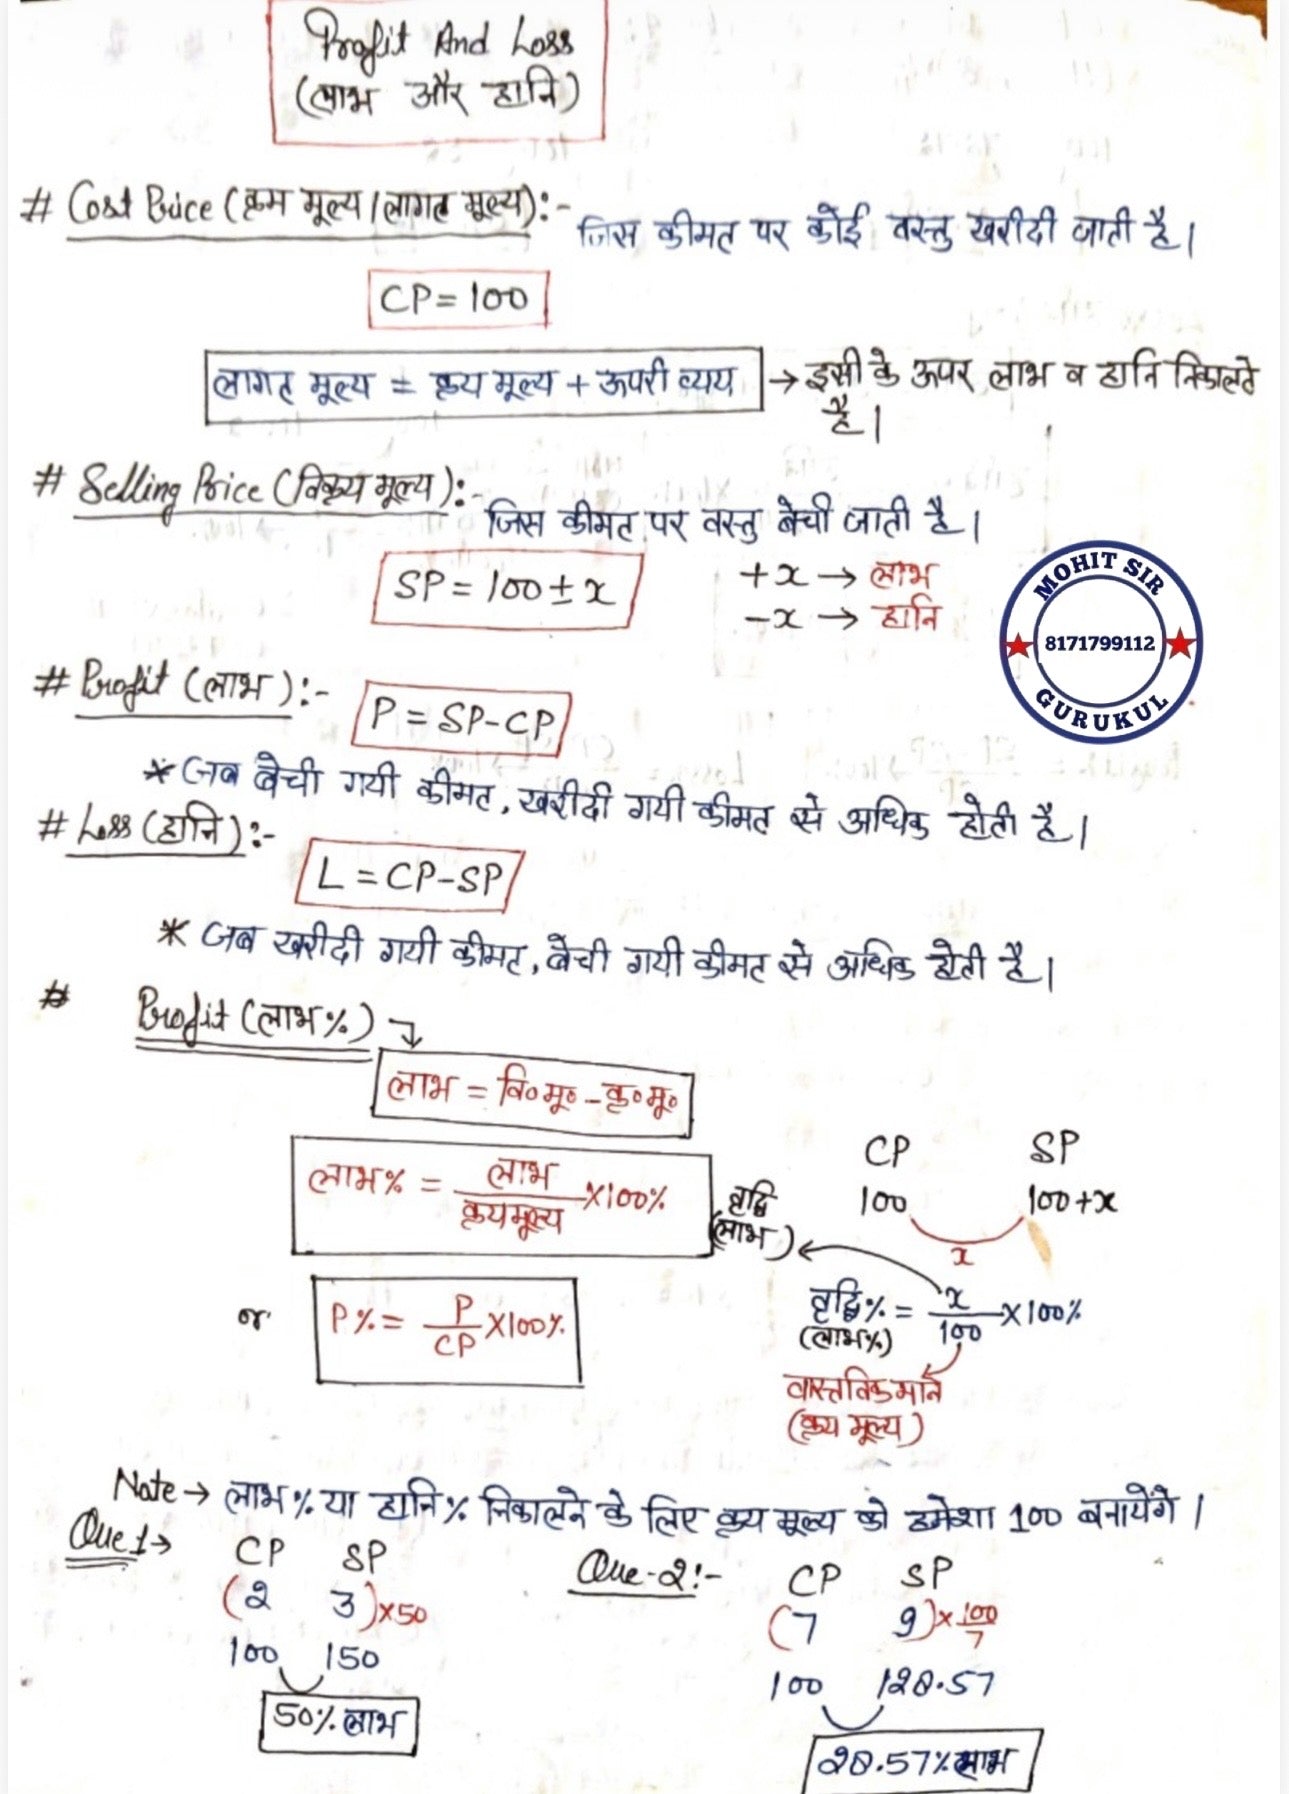 Profit And Loss
(लाभ और हानि)
# Cost Price (क्रय मूल्य / लागत मूल्य):- जिस कीमत पर कोई वस्तु खरीदी जाती है।
CP = 100
लागत मूल्य = क्रय मूल्य + ऊपरी व्यय → इसी के ऊपर लाभ व हानि निकालते
है।
# Selling Price (विक्रय मूल्य):- जिस कीमत पर वस्तु बेची जाती है।
SP = 100 ± x
+x → लाभ
-x → हानि
MOHIT SIR
8171799112
GURUKUL
# Profit (लाभ):- P = SP-CP
* जब बेची गयी कीमत, खरीदी गयी कीमत से अधिक होती है।
# Loss (हानि):-
L = CP-SP
* जब खरीदी गयी कीमत, बेची गयी कीमत से अधिक होती है।
# Profit (लाभ%)
लाभ = वि०मू० - क्र०मू०
लाभ% = लाभ/क्रयमूल्य ×100%
or P% = P/CP ×100%
CP SP
100 100+x
x
वृद्धि
(लाभ)
वृद्धि% = x/100 ×100%
(लाभ%)
वास्तविक मान
(क्रय मूल्य)
Note → लाभ% या हानि% निकालने के लिए क्रय मूल्य को हमेशा 100 बनायेंगे।
Que 1→ CP SP
(2 3)×50
100 150
50% लाभ
Que-2:- CP SP
(7 9)×100/7
100 128.57
28.57% लाभ